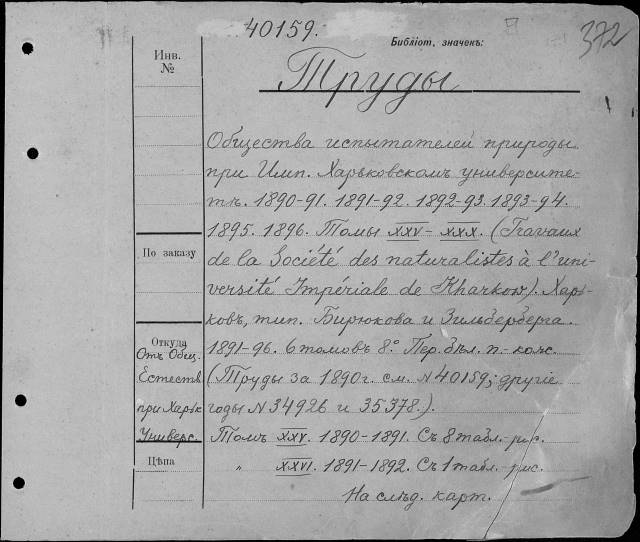 40159.
Библіот. значекъ:
372
Инв.
№
Труды
Общества испытателей природы
при Имп. Харьковскомъ университе-
тѣ. 1890-91. 1891-92. 1892-93. 1893-94.
1895. 1896. Томы XXV-XXX. (Travaux
de la Société des naturalistes à l'uni-
versité Impériale de Kharkow). Харь-
ковъ, тип. Бирюкова и Зильберберга.
1891-96. 6 томовъ 8º. Пер. бѣл. п.-кож.
(Труды за 1890 г. см. N 40159; другіе
годы N 34926 и 35378.).
Томъ XXV. 1890-1891. Съ 8 табл. рис.
" XXVI. 1891-1892. Съ 1 табл. рис.
На слѣд. карт.
По заказу
Откуда
Отъ Общ.
Естеств
при Харьк
Универс.
Цѣна